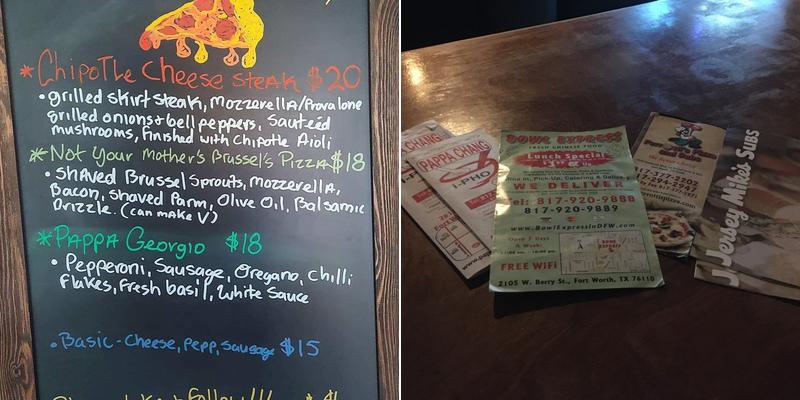 *Chipotle Cheese Steak $20
• grilled skirt steak, Mozzerella/Provalone
grilled onions + bell peppers, Sautéed
mushrooms, finished with Chipotle Aioli
*Not Your Mother's Brussel's Pizza $18
• shaved Brussel Sprouts, Mozzerella,
Bacon, Shaved Parm, Olive Oil, Balsamic
Drizzle. (can make V)
*Pappa Georgio $18
• Pepperoni, Sausage, Oregano, Chilli
flakes, fresh basil, White Sauce
• Basic - Cheese, Pepp, Sausage $15
CHANG
PAPPA CHANG
I-PHO
BOWL EXPRESS
FRESH CHINESE FOOD
Lunch Special
Dine in, Pick-Up, Catering & Delivery
WE DELIVER
Tel: 817-920-9888
817-920-9889
www.BowlExpressInDFW.com
Open 7 Days
A Week:
BOWL
EXPRESS
FREE WiFi
2105 W. Berry St., Fort Worth, TX 76110
817-377-3200
Jersey Mikes Subs